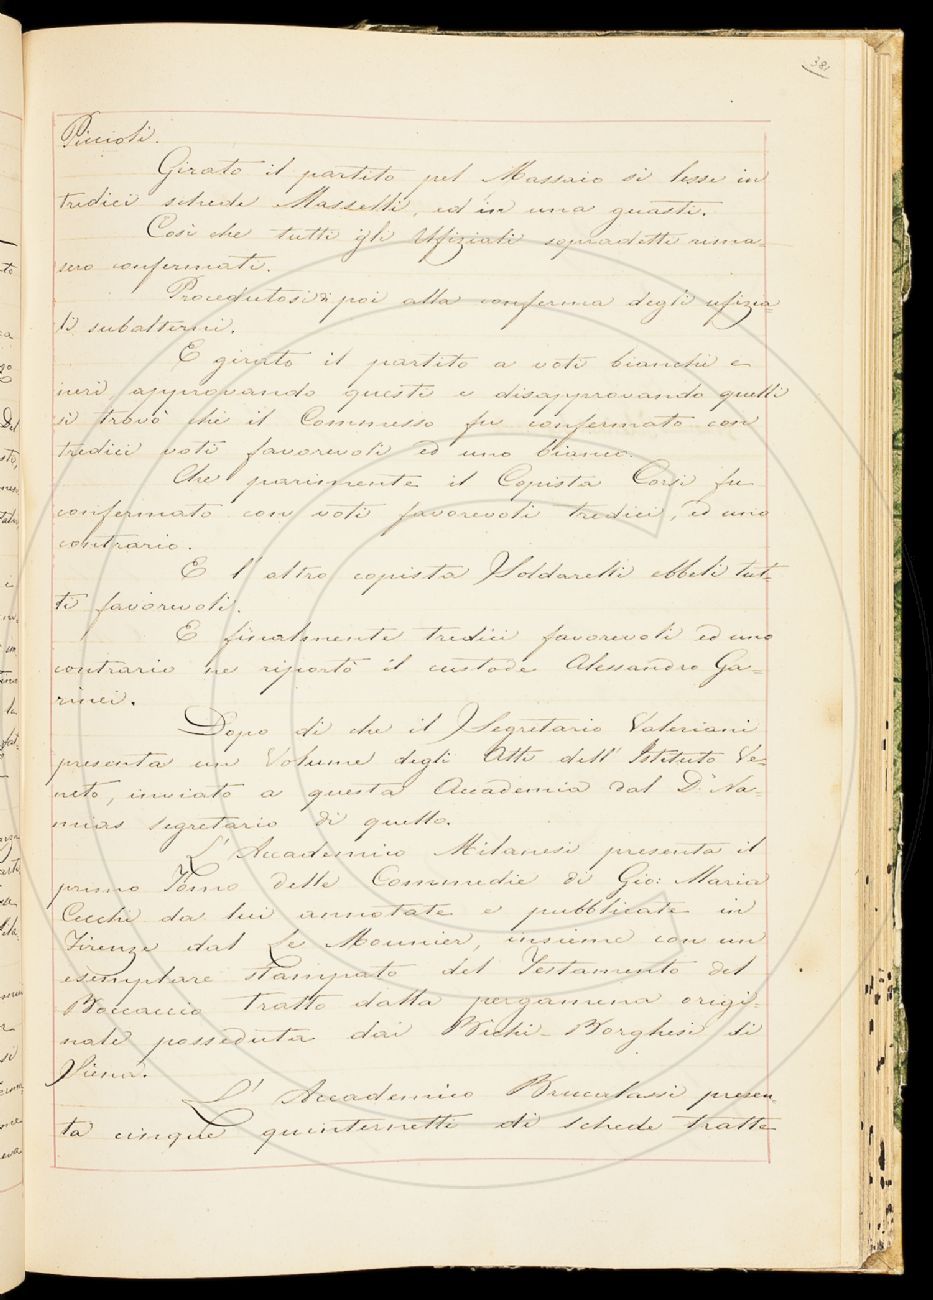 381
Piccioli.
Girato il partito pel Massaio si lesse in
tredici schede Masselli, ed in una guasti.
Così che tutti gli Ufiziali sopradetti rima=
sero confermati.
Procedutosi poi alla conferma degli ufizia=
li subalterni.
E girato il partito a voti bianchi e
neri approvando questi e disapprovando quelli
si trovò che il Commesso fu confermato con
tredici voti favorevoli ed uno bianco.
Che parimente il Copista Corsi fu
confermato con voti favorevoli tredici, ed uno
contrario.
E l'altro copista Soldarelli ebbeli tut=
ti favorevoli.
E finalmente tredici favorevoli ed uno
contrario ne riportò il custode Alessandro Ga=
rinei.
Dopo di che il Segretario Valeriani
presenta un Volume degli Atti dell'Istituto Ve=
neto, inviato a questa Accademia dal D.r Na=
mias segretario di quello.
L'Accademico Milanesi presenta il
primo Tomo delle Commedie di Gio: Maria
Cecchi da lui annotate e pubblicate in
Firenze dal Le Mounier, insieme con un
esemplare stampato del Testamento del
Boccaccio tratto dalla pergamena origi=
nale posseduta dai Bichi-Borghesi di
Siena.
L'Accademico Brucalassi presen
ta cinque quinternetti di schede tratte